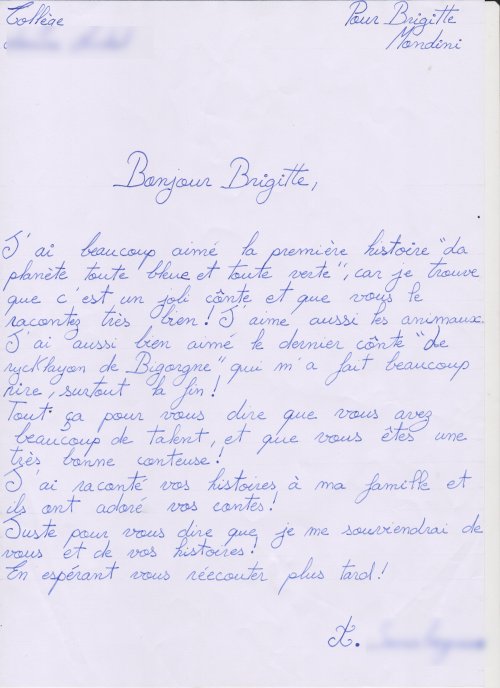 Collège
Pour Brigitte
Mondini
Bonjour Brigitte,
J'ai beaucoup aimé la première histoire "La
planète toute bleue et toute verte", car je trouve
que c'est un joli cônte et que vous le
racontez très bien! J'aime aussi les animaux.
J'ai aussi bien aimé le dernier cônte "Le
rycklayon de Bigorgne" qui m'a fait beaucoup
rire, surtout la fin!
Tout ça pour vous dire que vous avez
beaucoup de talent, et que vous êtes une
très bonne conteuse!
J'ai raconté vos histoires à ma famille et
ils ont adoré vos contes!
Juste pour vous dire que je me souviendrai de
vous et de vos histoires!
En espérant vous réecouter plus tard!
X.